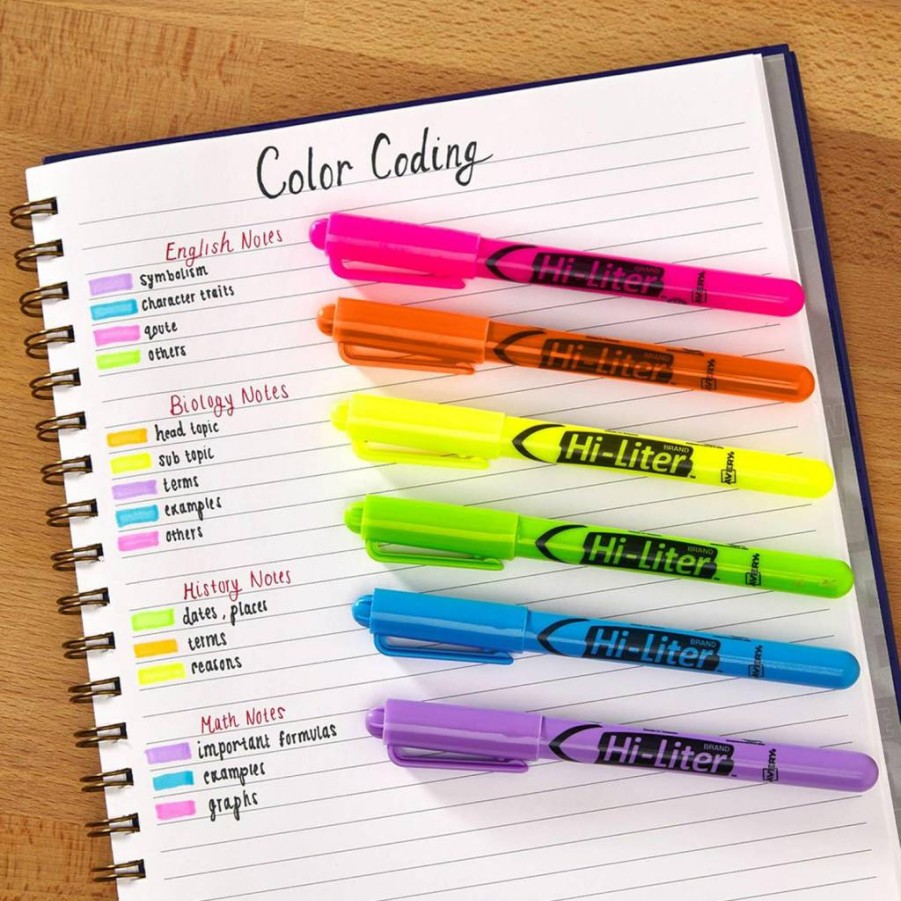 Color Coding
English Notes
symbolism
character traits
qoute
others
Biology Notes
head topic
sub topic
terms
examples
others
History Notes
dates, places
terms
reasons
Math Notes
important formulas
examples
graphs
Hi-Liter BRAND AVERY
Hi-Liter BRAND AVERY
Hi-Liter BRAND AVERY
Hi-Liter BRAND AVERY
Hi-Liter BRAND AVERY
Hi-Liter BRAND AVERY